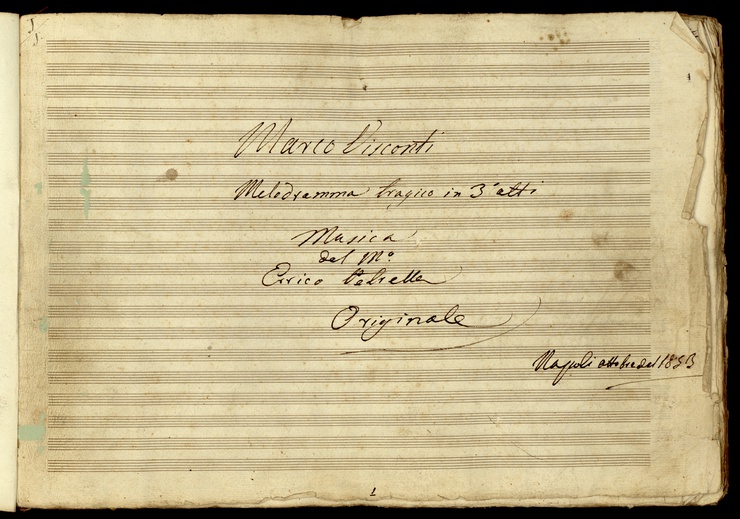 Marco Visconti
Melodramma tragico in 3 atti
Musica
del Mº
Errico Petrella
Originale
Napoli ottobre del 1853
1